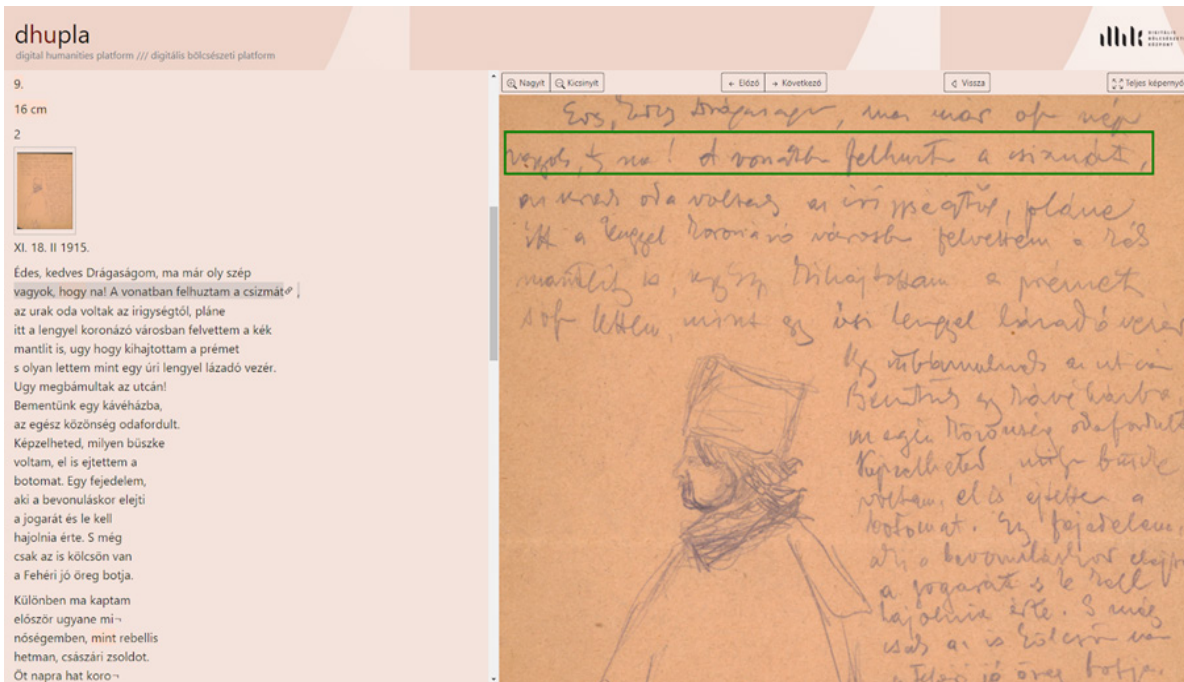 dhupla
digital humanities platform /// digitális bölcsészeti platform
DIGITÁLIS
BÖLCSÉSZETI
KÖZPONT
9.
16 cm
2
XI. 18. II 1915.
Édes, kedves Drágaságom, ma már oly szép
vagyok, hogy na! A vonatban felhuztam a csizmát ,
az urak oda voltak az irigységtől, pláne
itt a lengyel koronázó városban felvettem a kék
mantlit is, ugy hogy kihajtottam a prémet
s olyan lettem mint egy úri lengyel lázadó vezér.
Ugy megbámultak az utcán!
Bementünk egy kávéházba,
az egész közönség odafordult.
Képzelheted, milyen büszke
voltam, el is ejtettem a
botomat. Egy fejedelem,
aki a bevonuláskor elejti
a jogarát és le kell
hajolnia érte. S még
csak az is kölcsön van
a Fehéri jó öreg botja.
Különben ma kaptam
először ugyane mi¬
nőségemben, mint rebellis
hetman, császári zsoldot.
Öt napra hat koro¬
Nagyít Kicsinyít Előző Következő Vissza Teljes képernyő
Drágaságom, ma már oly szép
vagyok, na! A vonatban felhuztam a csizmát,
az urak oda voltak az irigységtől, pláne
itt a lengyel koronázó városban felvettem a kék
mantlit is, kihajtottam a prémet
lettem, mint egy úri lengyel lázadó vezér
az utcán
egy kávéházba,
az egész közönség odafordult
Képzelheted büszke
voltam, el is ejtettem a
botomat. Egy fejedelem,
aki a bevonuláskor
a jogarát s le kell
hajolnia érte. S még
csak az is kölcsön van
a Fehéri jó öreg botja.